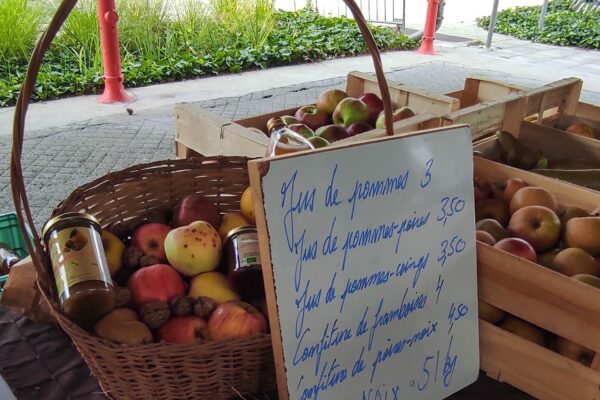 Jus de pommes 3
Jus de pommes-poires 3,50
Jus de pommes-coings 3,50
Confiture de framboises 4
Confiture de poires-noix 4,50
NOIX : 5/kg